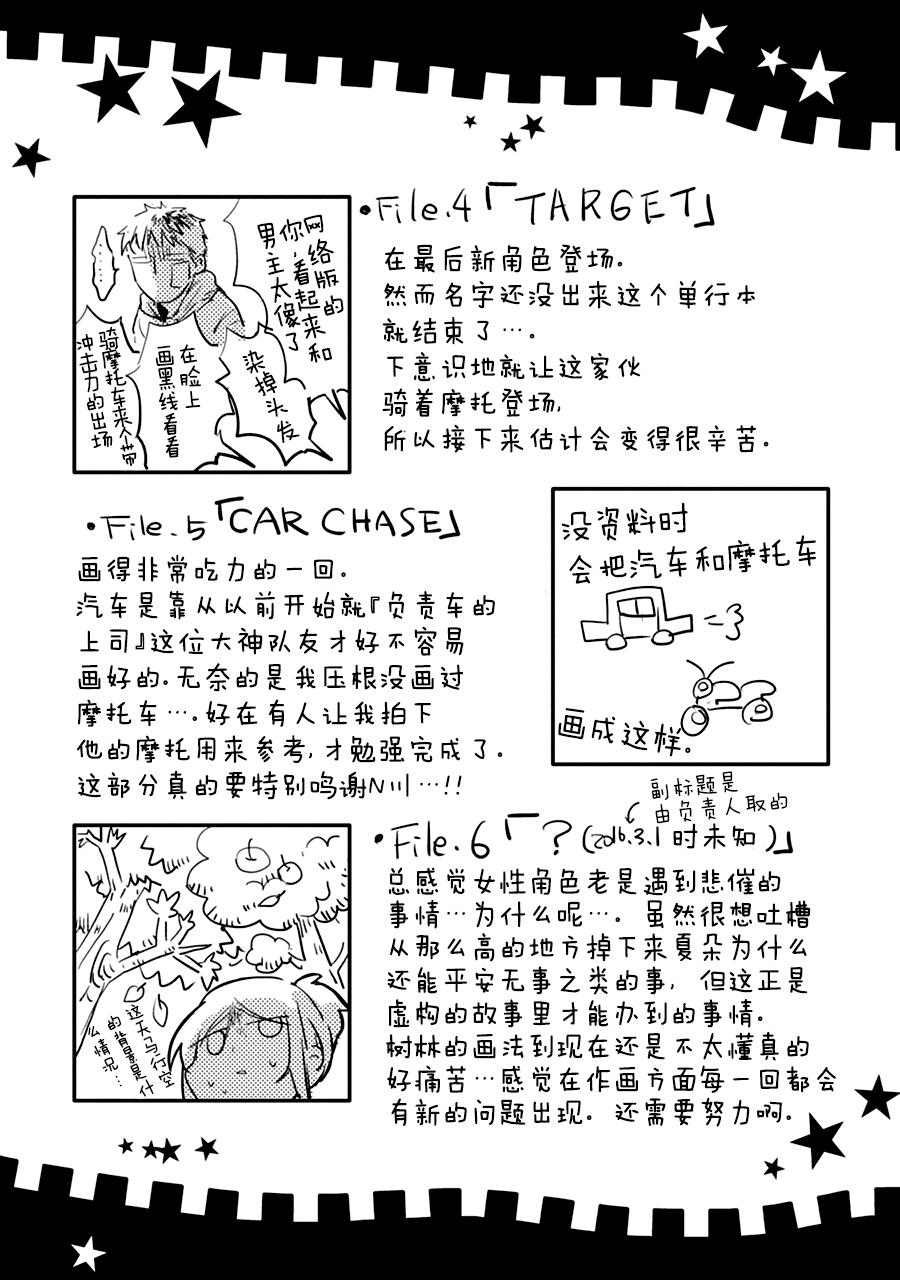 •File.4「TARGET」
在最后新角色登场。
然而名字还没出来这个单行本
就结束了…。
下意识地就让这家伙
骑着摩托登场,
所以接下来估计会变得很辛苦。
网络版的
你,看起来和
男主太像了
……
染掉头发
在脸上
画黑线看看
骑摩托车来个带
冲击力的出场
•File.5「CAR CHASE」
画得非常吃力的一回。
汽车是靠从以前开始就『负责车的
上司』这位大神队友才好不容易
画好的。无奈的是我压根没画过
摩托车…。好在有人让我拍下
他的摩托用来参考,才勉强完成了.
这部分真的要特别鸣谢N川…!!
没资料时
会把汽车和摩托车
画成这样。
•File.6「?(2016.3.1时未知)」
副标题是
由负责人取的
总感觉女性角色老是遇到悲催的
事情…为什么呢…。虽然很想吐槽
从那么高的地方掉下来夏朵为什么
还能平安无事之类的事,但这正是
虚构的故事里才能办到的事情。
树林的画法到现在还是不太懂真的
好痛苦…感觉在作画方面每一回都会
有新的问题出现。还需要努力啊。
这天马行空
的背景是什
么情况…